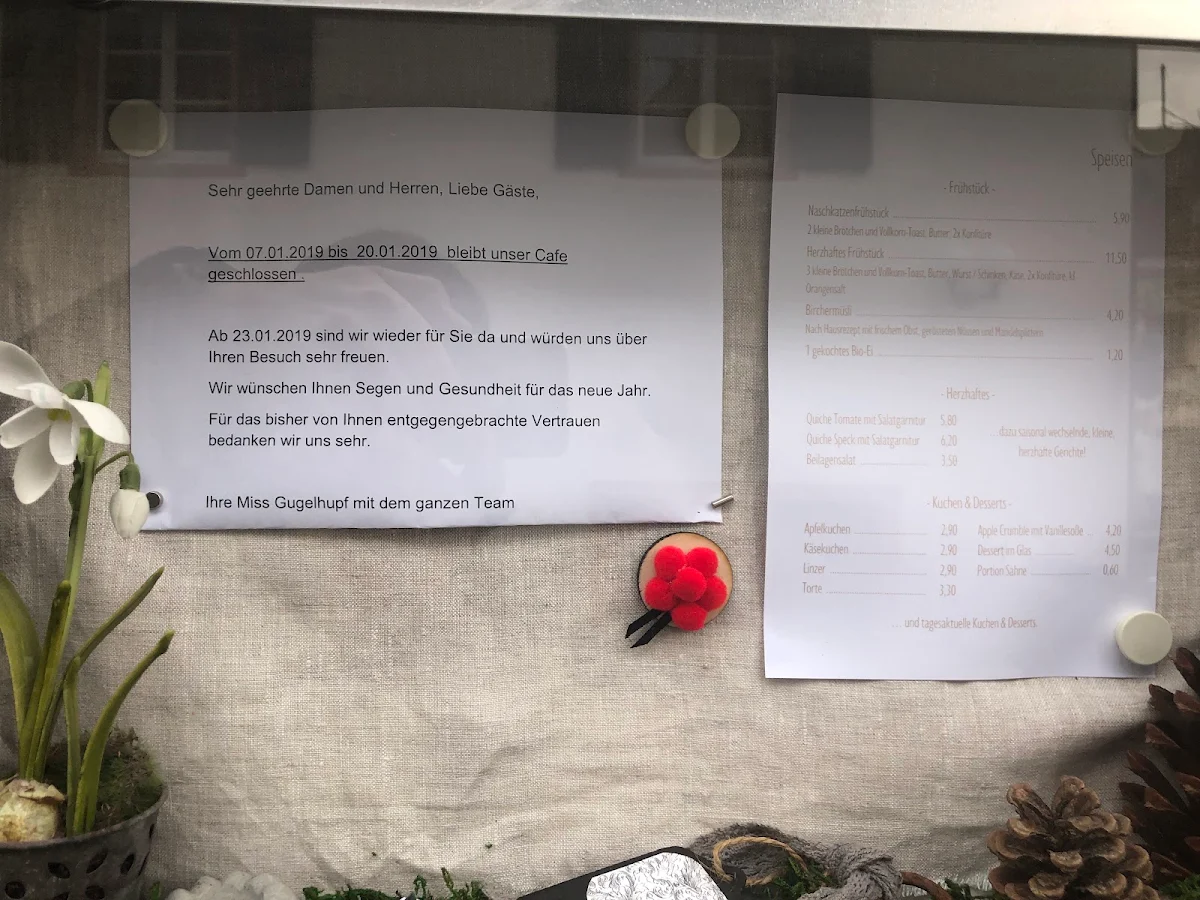 Sehr geehrte Damen und Herren, Liebe Gäste,
Vom 07.01.2019 bis 20.01.2019 bleibt unser Cafe
geschlossen .
Ab 23.01.2019 sind wir wieder für Sie da und würden uns über
Ihren Besuch sehr freuen.
Wir wünschen Ihnen Segen und Gesundheit für das neue Jahr.
Für das bisher von Ihnen entgegengebrachte Vertrauen
bedanken wir uns sehr.
Ihre Miss Gugelhupf mit dem ganzen Team
Speisen
- Frühstück -
Naschkatzenfrühstück 5,90
2 kleine Brötchen und Vollkorn-Toast, Butter, 2x Konfitüre
Herzhaftes Frühstück 11,50
3 kleine Brötchen und Vollkorn-Toast, Butter, Wurst / Schinken, Käse, 2x Konfitüre, kl
Orangensaft
Birchermüsli 4,20
Nach Hausrezept mit frischem Obst, gerösteten Nüssen und Mandelsplittern
1 gekochtes Bio-Ei 1,20
- Herzhaftes -
Quiche Tomate mit Salatgarnitur 5,80
Quiche Speck mit Salatgarnitur 6,20
Beilagensalat 3,50
...dazu saisonal wechselnde, kleine,
herzhafte Gerichte!
- Kuchen & Desserts -
Apfelkuchen 2,90
Käsekuchen 2,90
Linzer 2,90
Torte 3,30
Apple Crumble mit Vanillesoße 4,20
Dessert im Glas 4,50
Portion Sahne 0,60
... und tagesaktuelle Kuchen & Desserts.